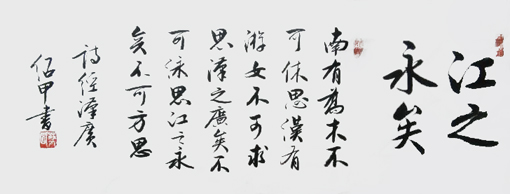 江之
永矣
南有喬木不
可休思漢有
游女不可求
思漢之廣矣不
可泳思江之永
矣不可方思
詩經漢廣
甲書